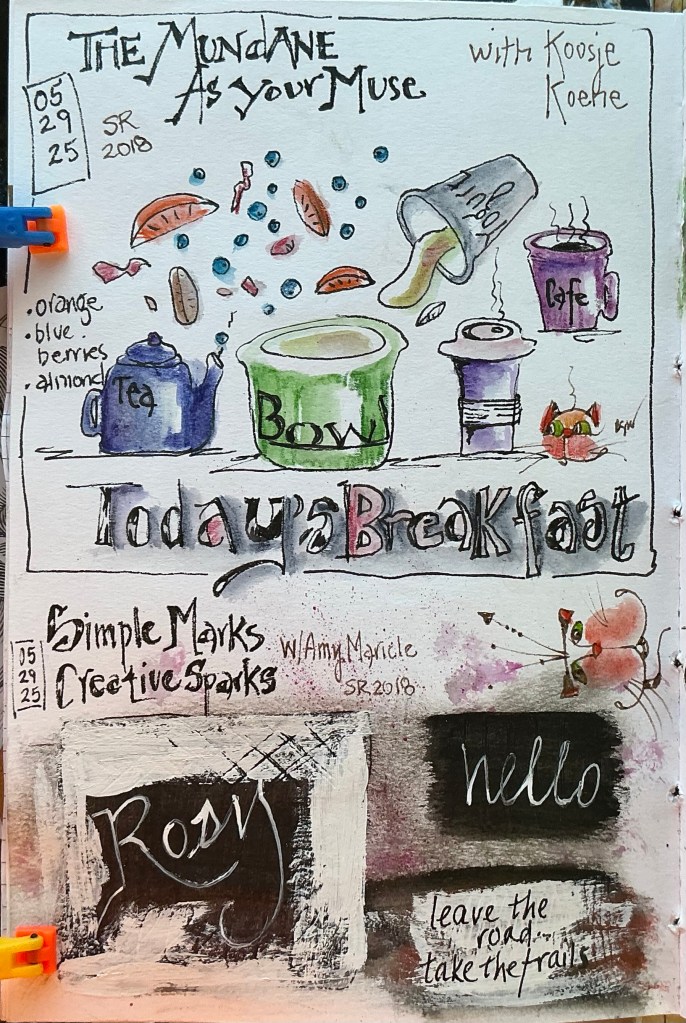 The Mundane
As Your Muse
with Koosje
Koene
05
29
25
SR
2018
Yogurt
Cafe
• orange
• blue
berries
• almond
Tea
Bowl
Today's Breakfast
Simple Marks
Creative Sparks
w/Amy Maricle
SR 2018
05
29
25
Rosy
hello
leave the
road...
take the trails